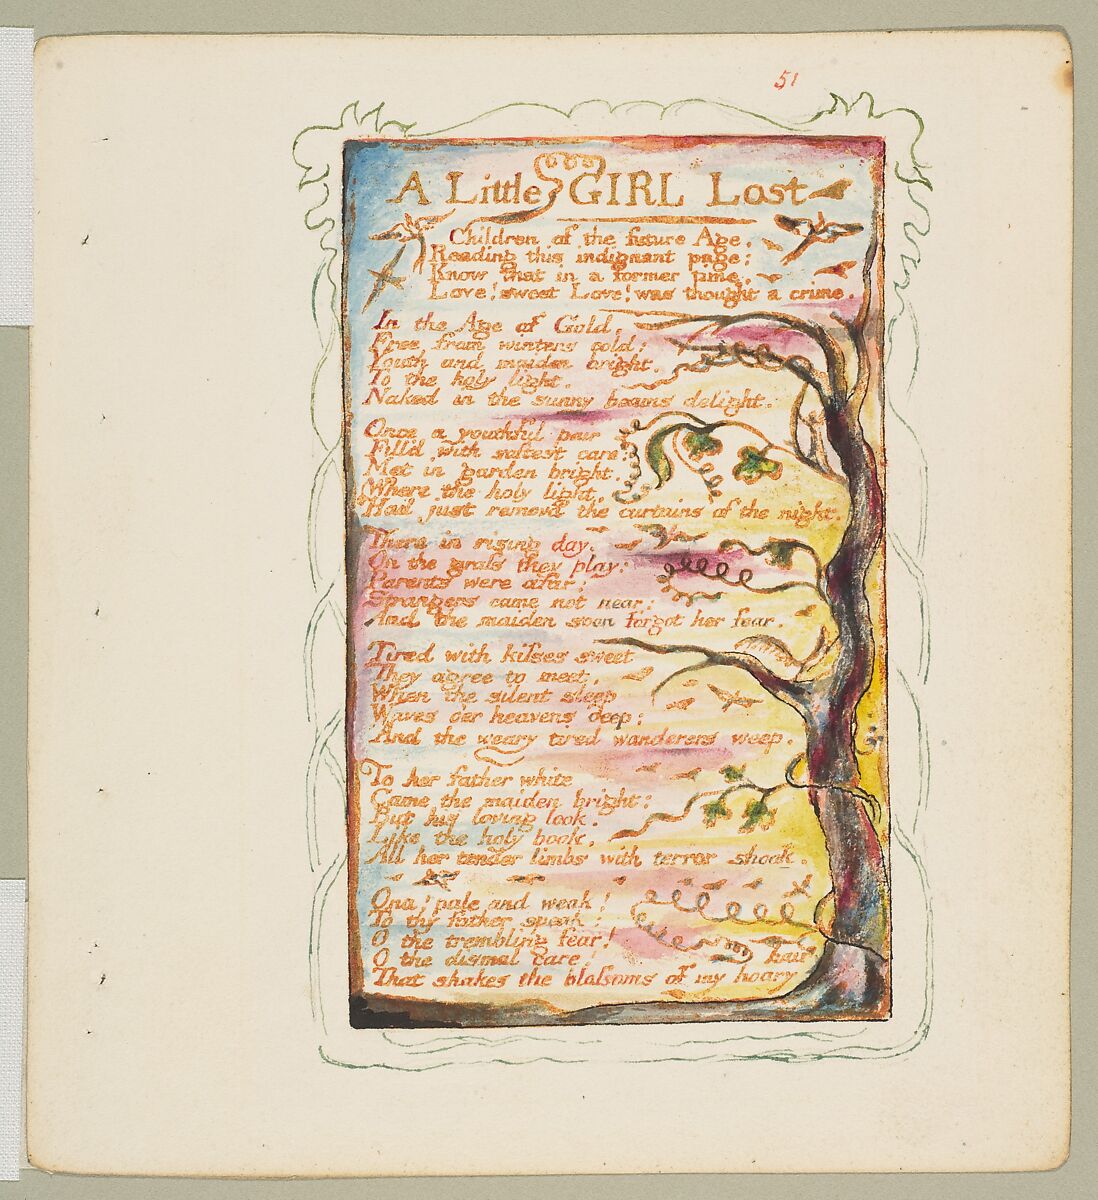 51
A Little GIRL Lost
Children of the future Age,
Reading this indignant page;
Know that in a former time,
Love! sweet Love! was thought a crime.
In the Age of Gold,
Free from winters cold:
Youth and maiden bright,
To the holy light,
Naked in the sunny beams delight.
Once a youthful pair
Fill'd with softest care:
Met in garden bright,
Where the holy light,
Had just removd the curtains of the night.
There in rising day,
On the grass they play:
Parents were afar:
Strangers came not near:
And the maiden soon forgot her fear.
Tired with kisses sweet
They agree to meet,
When the silent sleep
Waves oer heavens deep:
And the weary tired wanderers weep.
To her father white
Came the maiden bright:
But his loving look,
Like the holy book,
All her tender limbs with terror shook.
Ona! pale and weak!
To thy father speak:
O the trembling fear!
O the dismal care!
That shakes the blossoms of my hoary hair